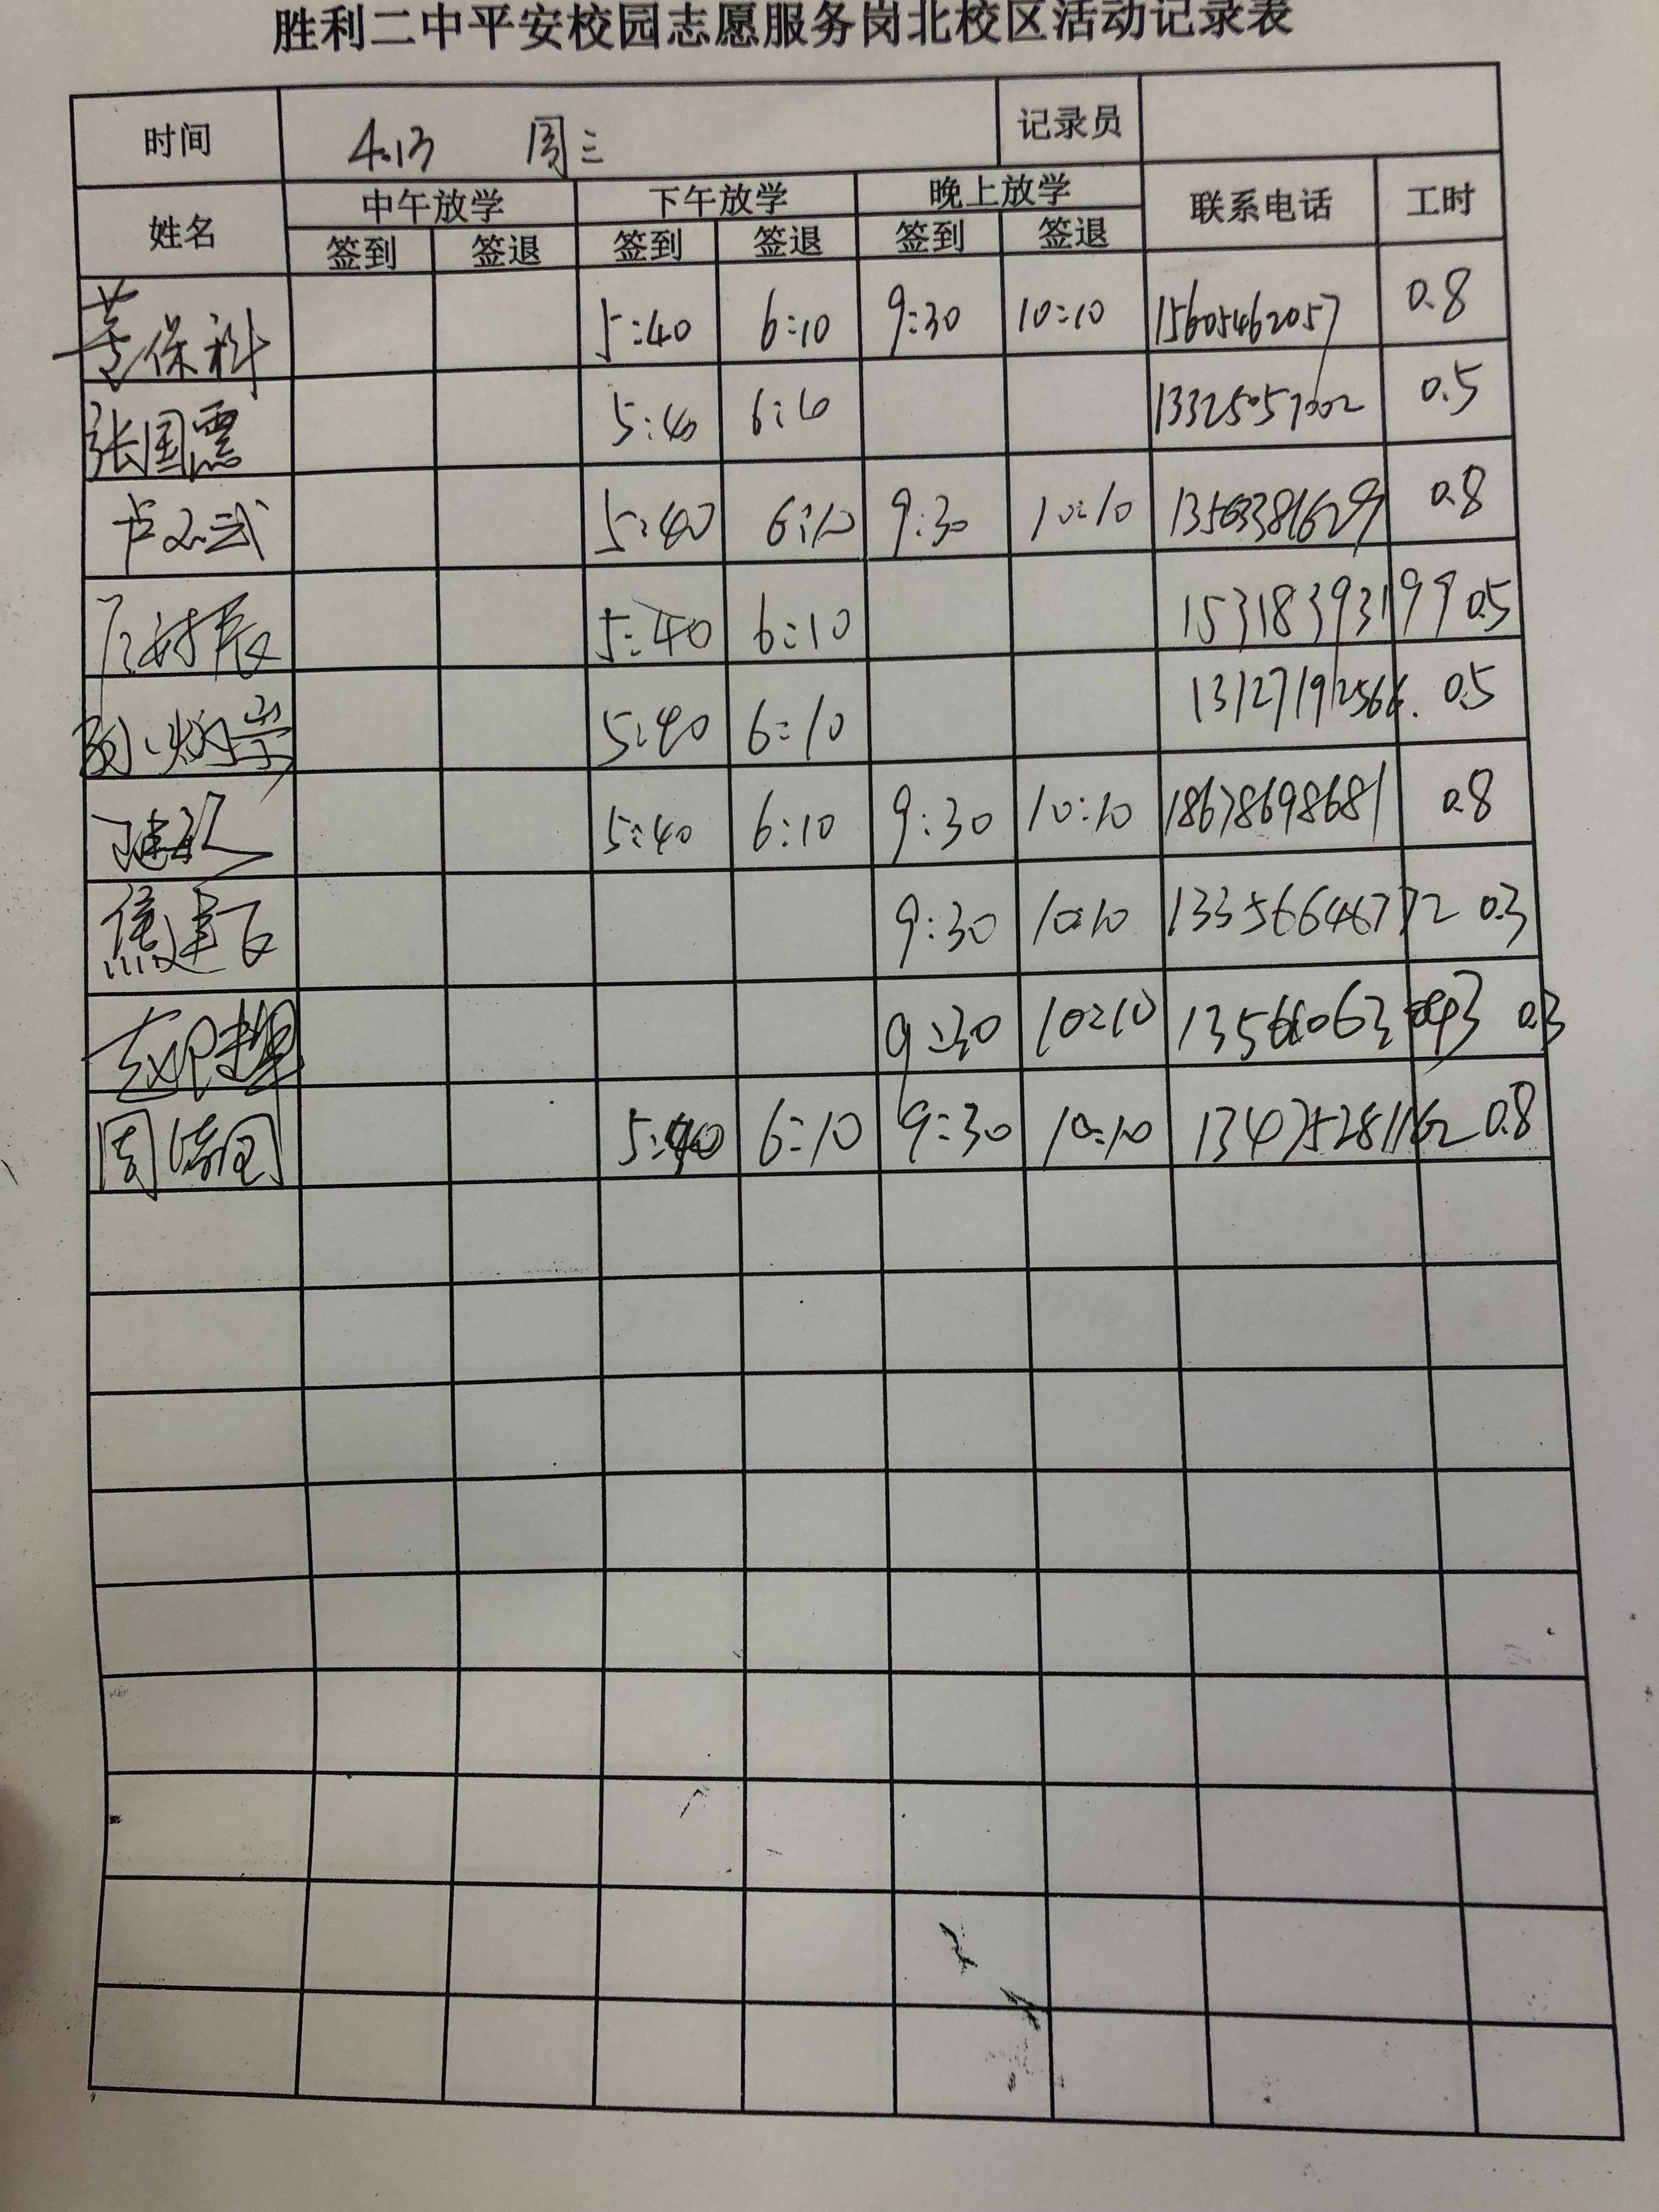 胜利二中平安校园志愿服务岗北校区活动记录表
时间 4.13 周三 记录员
姓名 中午放学 下午放学 晚上放学 联系电话 工时
签到 签退 签到 签退 签到 签退
董保科 5:40 6:10 9:30 10:10 15605462057 0.8
张国震 5:40 6:10 13325057002 0.5
卢文武 5:40 6:10 9:30 10:10 13563381629 0.8
5:40 6:10 15318393199 0.5
5:40 6:10 13127192566. 0.5
5:40 6:10 9:30 10:10 18678698681 0.8
焦建飞 9:30 10:10 13356646772 0.3
9:30 10:10 0.3
周 5:40 6:10 9:30 10:10 13475281162 0.8